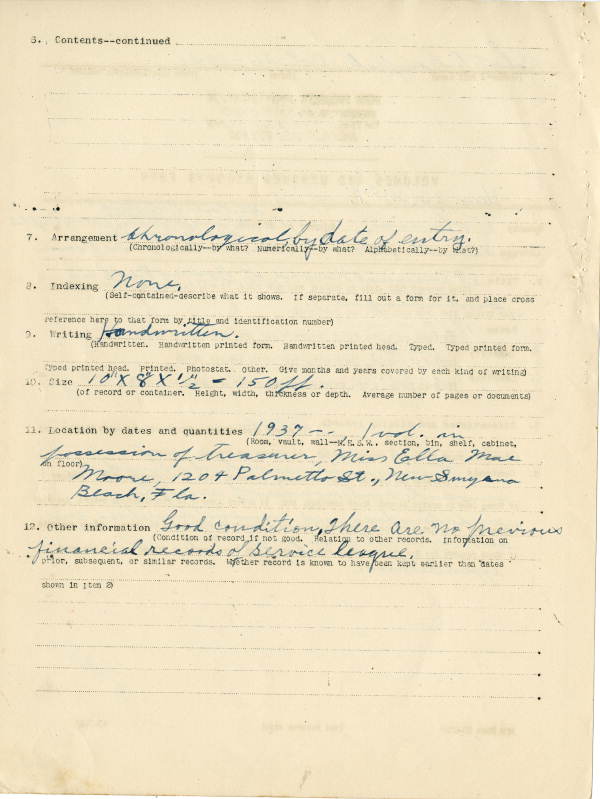 6. Contents--continued
7. Arrangement Chronological, by date of entry.
(Chronologically--by what? Numerically--by what? Alphabetically--by what?)
8. Indexing None.
(Self-contained-describe what it shows. If separate, fill out a form for it, and place cross
reference here to that form by title and identification number)
9. Writing Handwritten.
(Handwritten. Handwritten printed form. Handwritten printed head. Typed. Typed printed form.
Typed printed head. Printed. Photostat. Other. Give months and years covered by each kind of writing)
10. Size 10" X 8" X 1/2" - 150 ff.
(of record or container. Height, width, thickness or depth. Average number of pages or documents)
11. Location by dates and quantities 1937 -- 1 vol. in
(Room, vault, wall--N.E.S.W., section, bin, shelf, cabinet,
possession of treasurer, Miss Ella Mae
on floor)
Moore, 1204 Palmetto St., New Smyrna
Beach, Fla.
12. Other information Good condition. There are no previous
(Condition of record if not good. Relation to other records. Information on
financial records of Service league.
prior, subsequent, or similar records. Whether record is known to have been kept earlier than dates
shown in item 2)